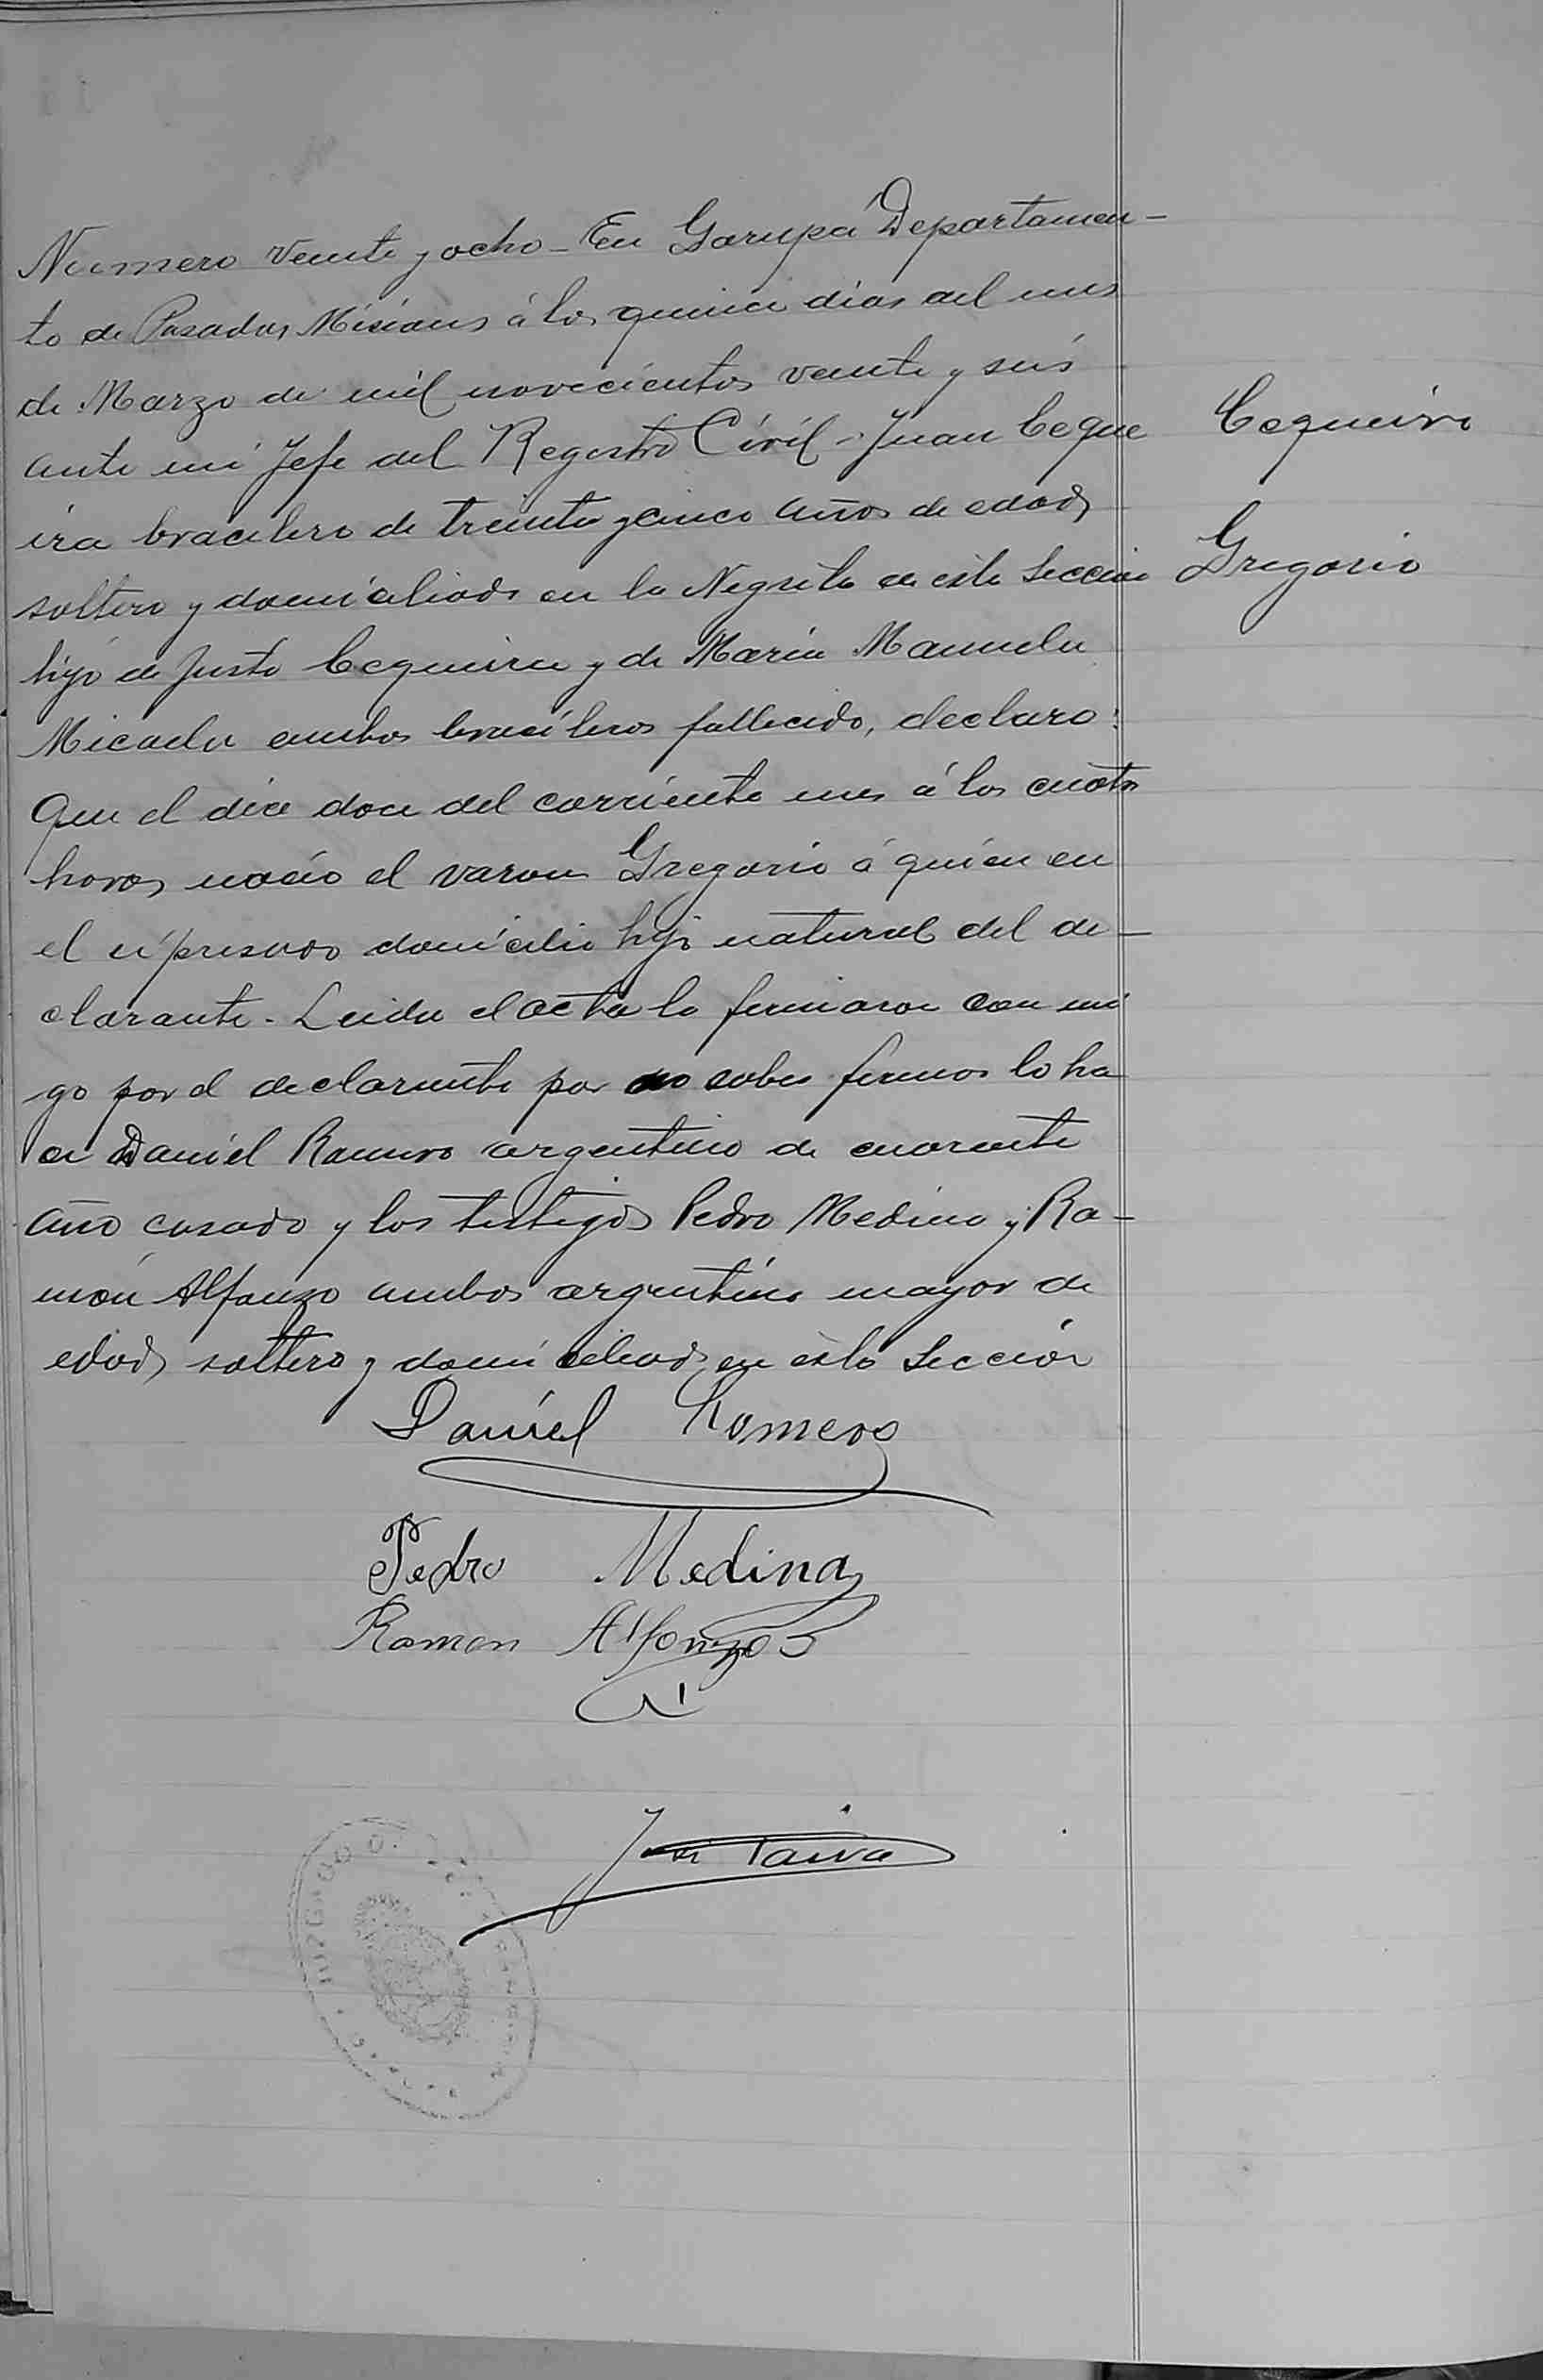 Numero veinte y ocho - En Garupá Departamen-
to de Posadas Misiones á los quince dias del mes
de Marzo de mil novecientos veinte y seis
ante mi Jefe del Registro Civil - Juan Ceque
Cequeira
ira bracilero de treinta y cinco años de edad,
soltero y domiciliado en la Negrita de esta Sección
Gregorio
hijo de Justo Cequeira y de Maria Manuela
Micaela ambos bracileros fallecido, declaro:
Que el dia doce del corriente mes á las cuatro
horas nacio el varon Gregorio á quien en
el domicilio hijo natural del de-
clarante. Leida el acta la firmaron con mi
go por el declarante por no saber firmar lo ha
ce Daniel Romero argentino de cuarenta
año casado y los testigos Pedro Medina y Ra-
món Alfonzo ambos argentino mayor de
edad, soltero y domiciliado en esta Sección
Daniel Romero
Pedro Medina
Ramon Alfonzo
José Paiva
JUZGADO D